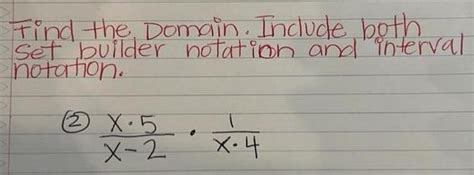 Find the Domain. Include both
set builder notation and interval
notation.
② x·5/x-2 · 1/x·4